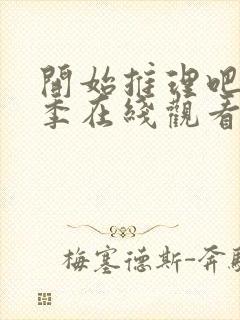 開始推理吧
季在綫觀看
梅塞德斯-奔